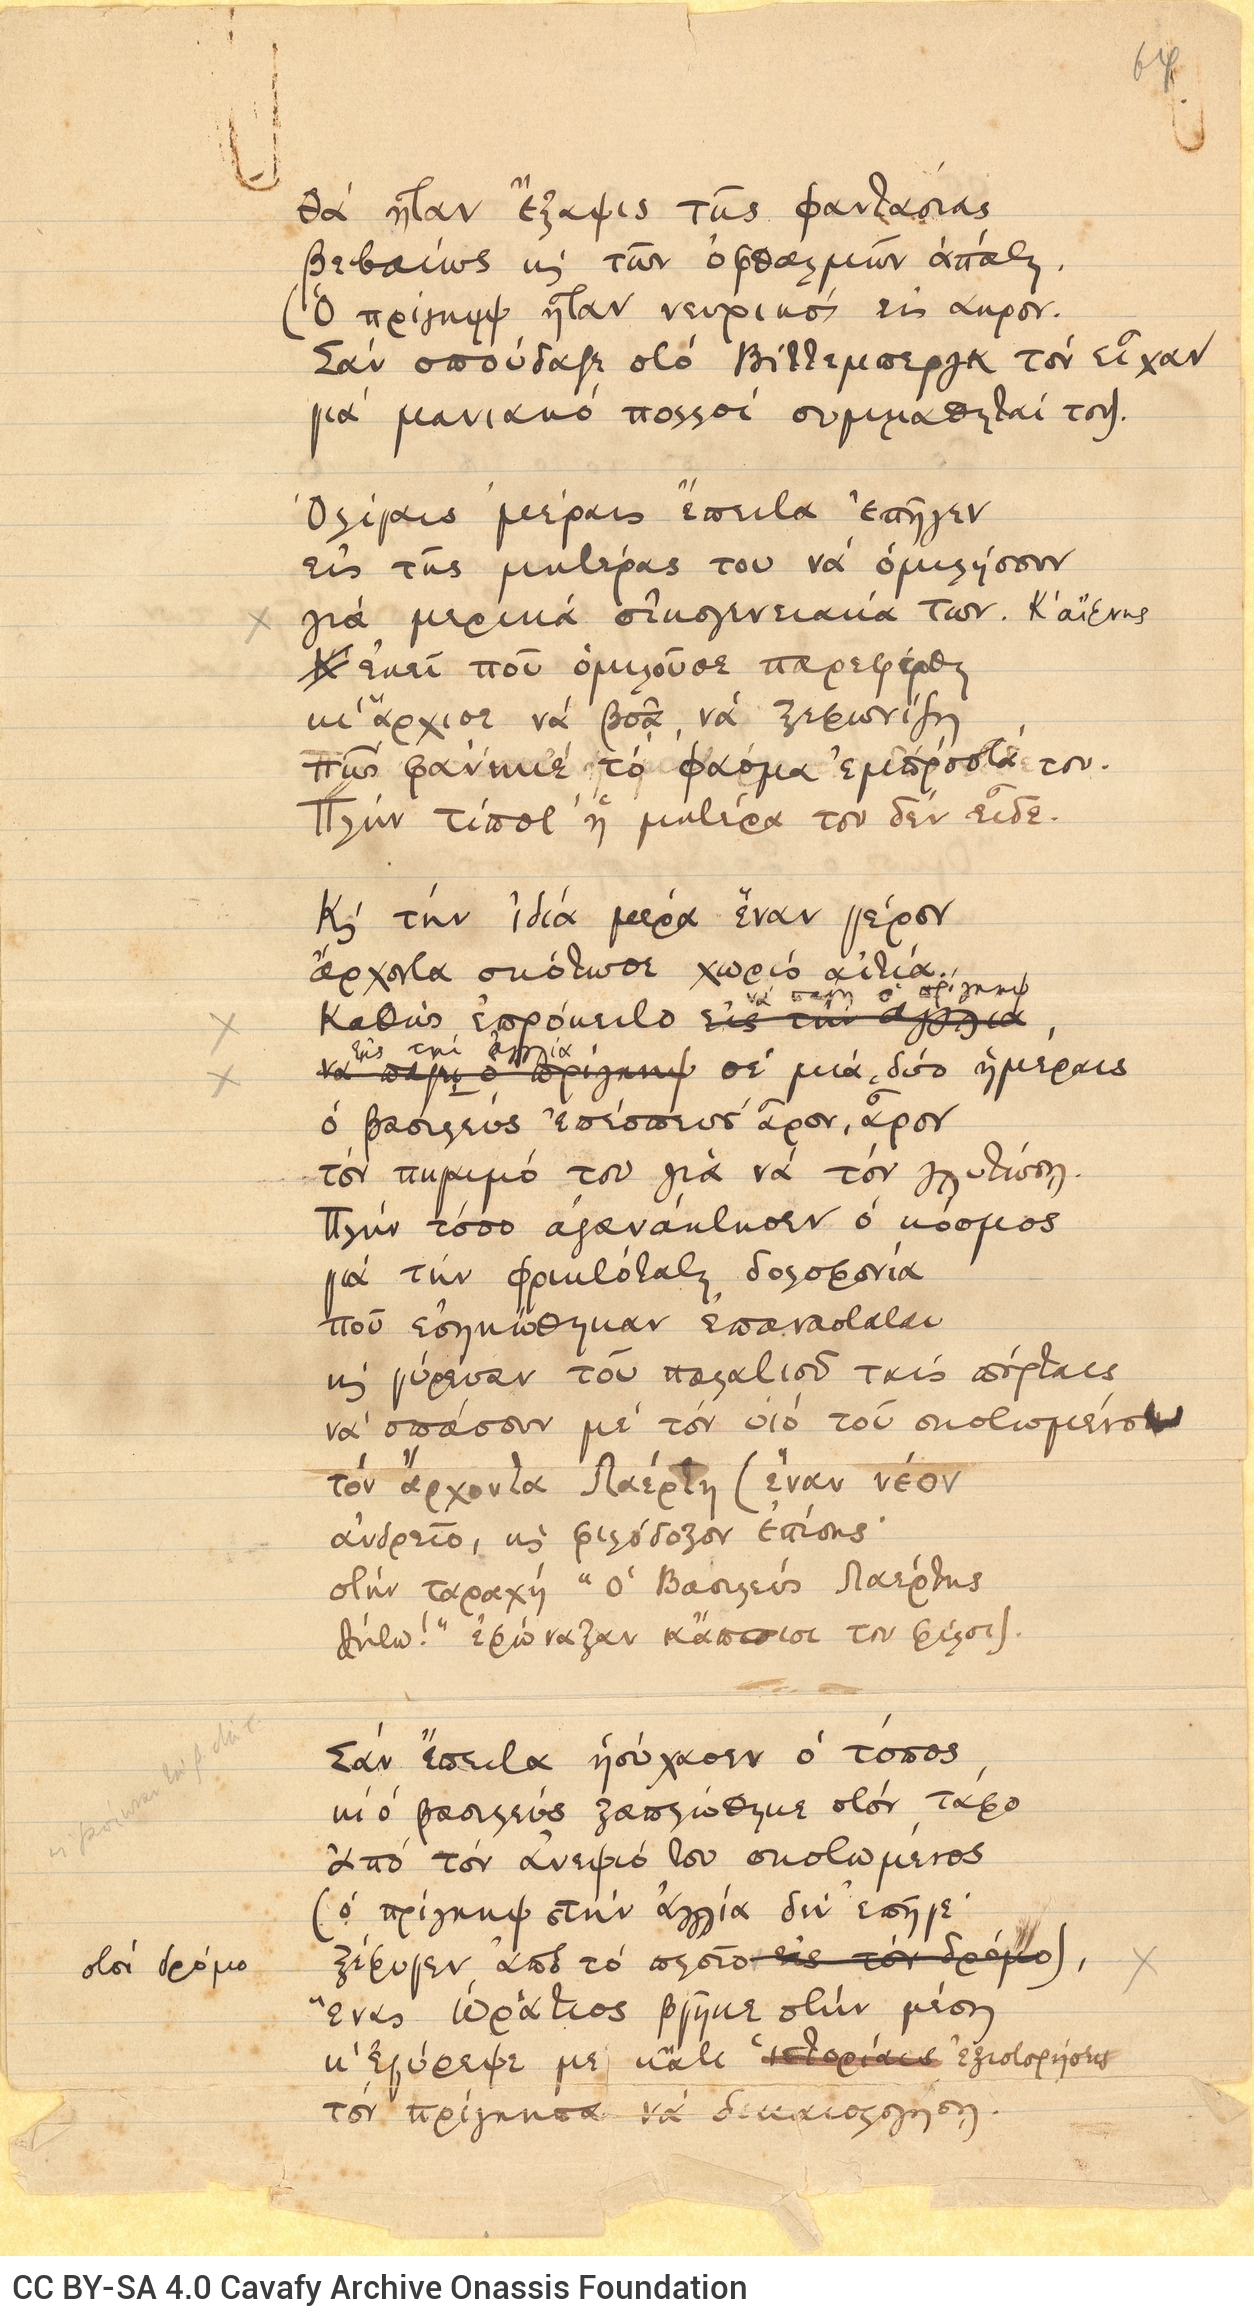 θά ἦταν ἔξαψις τῆς φαντασίας
βεβαίως κ τῶν ὀφθαλμῶν ἀπάτη.
(Ὁ πρίγκηψ ἦταν νευρικός εἰς ἄκρον.
Σάν σπούδαζε στό Βίττεμπεργκ τόν εἶχαν
γιά μανιακό πολλοί συμμαθηταί του).
Ὀλίγαις μέραις ἔπειτα ἐπῆγεν
εἰς τῆς μητέρας του νά ὁμιλήσουν
γιά μερικά οἰκογενειακά των. Κ' αἴφνης
Κ' ἐκεῖ ποῦ ὁμιλοῦσε παρεφέρθη
κι' ἄρχισε νά βοᾶ, νά ξεφωνίζῃ
πῶς φάνηκε τό φάσμα ἐμπροστά του.
Πλήν τίποτ' ἡ μητέρα του δέν εἶδε.
Κ τήν ἰδιά μέρα ἔναν γέρον
ἄρχοντα σκότωσε χωρίς αἰτία.
νά πάγῃ ὁ πρίγκηψ
Καθώς ἐπρόκειτο εἰς τήν Ἀγγλία,
εἰς τήν Ἀγγλία
νά πάγῃ ὁ πρίγκηψ σέ μιά, δύο ἡμέραις
ὁ βασιλεύς ἐπέσπευσ' ἆρον, ἆρον
τόν πηγαιμό του γιά νά τόν γλυτώσῃ.
Πλήν τόσο ἀγανάκτησεν ὁ κόσμος
γιά τήν φρικτότατη δολοφονία
ποῦ ἐσηκώθηκαν ἐπαναστάται
κ γύρευαν τοῦ παλατιοῦ ταίς πόρταις
νά σπάσουν μέ τόν υἱό τοῦ σκοτωμένου
τόν ἄρχοντα Λαέρτη (ἔναν νέον
ἀνδρεῖο, κ φιλόδοξον ἐπίσης·
στήν ταραχή "Ὁ Βασιλεύς Λαέρτης
ζήτω!" ἐφώναξαν κάποιοι του φίλοι).
Σάν ἔπειτα ἡσύχασεν ὁ τόπος
κι ὁ βασιλεύς ξαπλώθηκε στόν τάφο
ἀπό τόν ἀνεψιό του σκοτωμένος
(ὁ πρίγκηψ στήν Ἀγγλία δέν ἐπῆγε·
στόν δρόμο ξέφυγεν ἀπό τό πλοῖο εἰς τόν δρόμο),
ἔνας Ὡράτιος βγῆκε στήν μέση
κ' ἐγύρεψε με κάτι ἱστορίαις ἐξιστορήσεις
τόν πρίγκηπα νά δικαιολογήσῃ.
CC BY-SA 4.0 Cavafy Archive Onassis Foundation